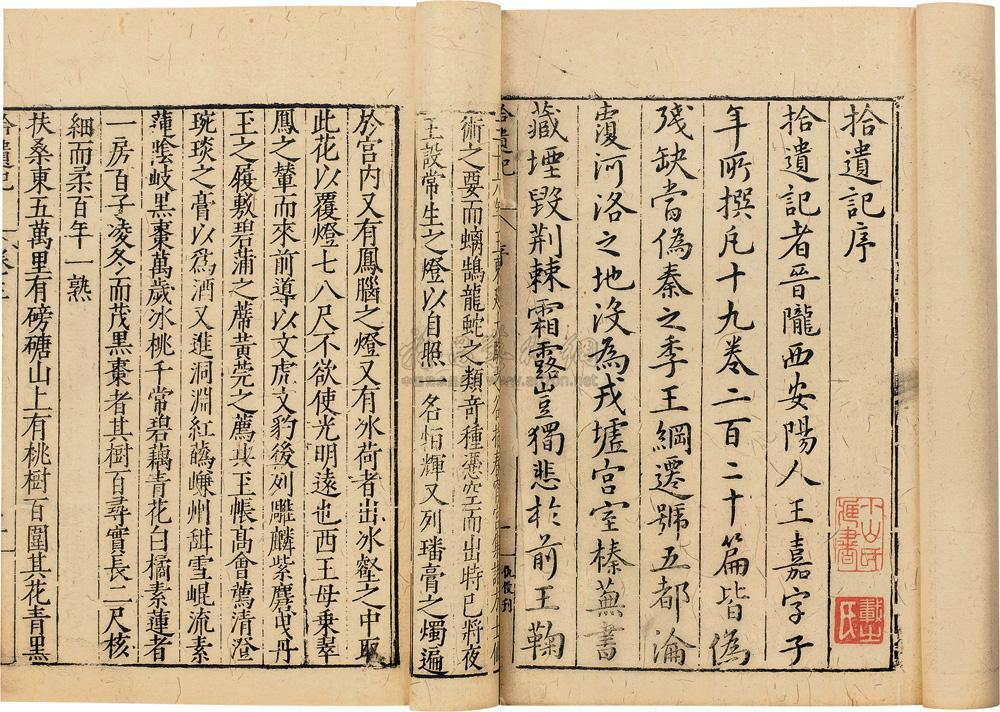 拾遺記序
拾遺記者晉隴西安陽人王嘉字子
年所撰凡十九卷二百二十篇皆為
殘缺當偽秦之季王綱遷號五都淪
覆河洛之地沒為戎墟宮室榛蕪書
藏堙毀荊棘霜露豈獨悲於前王鞠
拾遺記
術之要而螭鵠龍蛇之類奇種憑空而出時已將夜
王設常生之燈以自照 名恒輝又列璠膏之燭遍
於宮內又有鳳腦之燈又有冰荷者出冰壑之中取
此花以覆燈七八尺不欲使光明遠也西王母乘翠
鳳之輦而來前導以文虎文豹後列雕麟紫麏曳丹
玉之履敷碧蒲之蓆黃莞之薦共王帳高會薦清澄
琬琰之膏以為酒又進洞淵紅蘤嵊州甜雪崐流素
蓮陰岐黑棗萬歲冰桃千常碧藕青花白橘素蓮者
一房百子凌冬而茂黑棗者其樹百尋實長二尺核
細而柔百年一熟
扶桑東五萬里有磅磄山上有桃樹百圍其花青黑
拾遺記 卷三